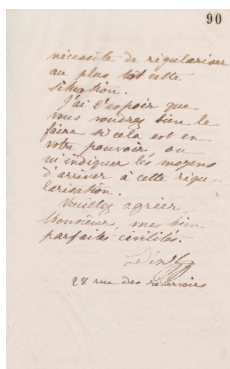 90
nécessité de régulariser
au plus tôt cette
situation.
J'ai l'espoir que
vous voudrez bien le
faire si cela est en
votre pouvoir, ou
m'indiquer les moyens
d'arriver à cette régu-
larisation.
Veuillez agréer
Monsieur, mes bien
parfaites civilités.
28 rue des Réservoirs